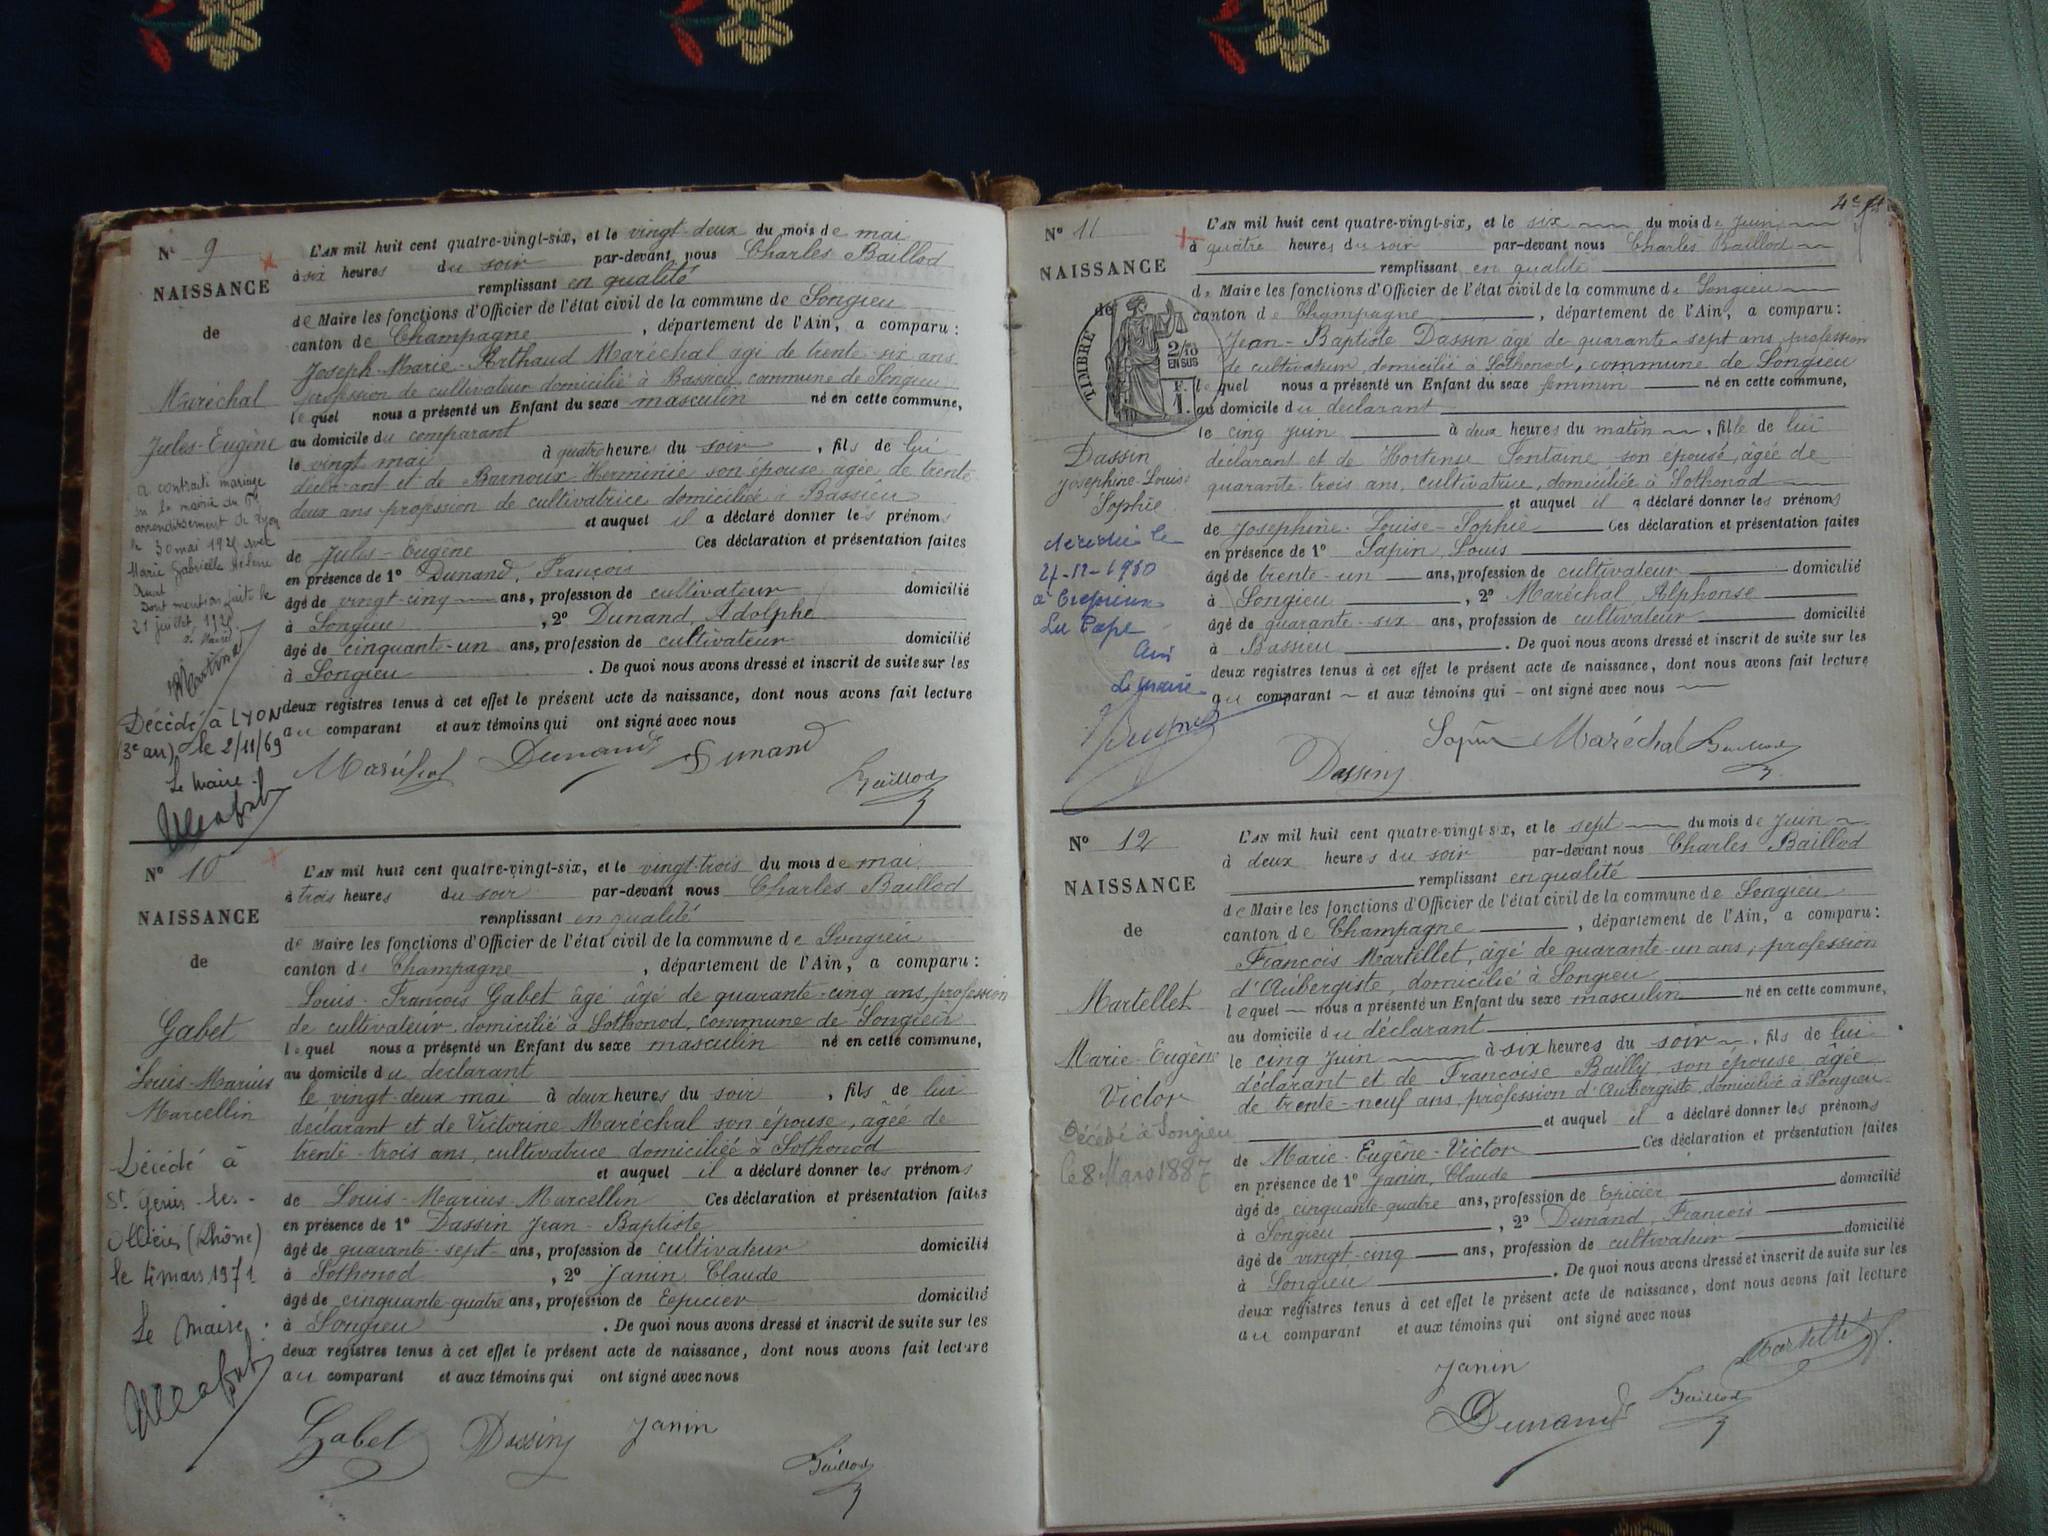 N° 9
NAISSANCE
de
Maréchal
Jules-Eugène
a contracté mariage
en la mairie du
arrondissement de Lyon
le 30 mai 192 avec
Marie Gabrielle Hélène
Dont mention faite le
21 juillet 192
Décédé à LYON
(3e arr) le 2/11/69
Le Maire
L'AN mil huit cent quatre-vingt-six, et le vingt-deux du mois de mai
à six heures du soir par-devant nous Charles Baillod
remplissant en qualité
de Maire les fonctions d'Officier de l'état civil de la commune de Songieu
canton de Champagne, département de l'Ain, a comparu :
Joseph-Marie-Arthaud Maréchal âgé de trente-six ans
profession de cultivateur domicilié à Bassieu, commune de Songieu
lequel nous a présenté un Enfant du sexe masculin né en cette commune,
au domicile du comparant
le vingt mai à quatre heures du soir, fils de lui
déclarant et de Herminie son épouse âgée de trente
deux ans profession de cultivatrice domiciliée à Bassieu
et auquel il a déclaré donner les prénoms
de Jules-Eugène Ces déclaration et présentation faites
en présence de 1° Dunand, François
âgé de vingt-cinq ans, profession de cultivateur domicilié
à Songieu, 2° Dunand, Adolphe
âgé de cinquante-un ans, profession de cultivateur domicilié
à Songieu. De quoi nous avons dressé et inscrit de suite sur les
deux registres tenus à cet effet le présent acte de naissance, dont nous avons fait lecture
au comparant et aux témoins qui ont signé avec nous
Maréchal Dunand Dunand
Baillod
N° 10
NAISSANCE
de
Gabet
Louis-Marius
Marcellin
Décédé à
St Genis-les-
Ollières (Rhône)
le 4 mars 1971
Le Maire :
L'AN mil huit cent quatre-vingt-six, et le vingt-trois du mois de mai
à trois heures du soir par-devant nous Charles Baillod
remplissant en qualité
de Maire les fonctions d'Officier de l'état civil de la commune de Songieu
canton de Champagne, département de l'Ain, a comparu :
Louis-François Gabet âgé âgé de quarante-cinq ans, profession
de cultivateur, domicilié à Sothonod, commune de Songieu
lequel nous a présenté un Enfant du sexe masculin né en cette commune,
au domicile du déclarant
le vingt-deux mai à deux heures du soir, fils de lui
déclarant et de Victorine Maréchal son épouse, âgée de
trente-trois ans, cultivatrice domiciliée à Sothonod
et auquel il a déclaré donner les prénoms
de Louis-Marius-Marcellin Ces déclaration et présentation faites
en présence de 1° Dassin Jean-Baptiste
âgé de quarante-sept ans, profession de cultivateur domicilié
à Sothonod, 2° Janin Claude
âgé de cinquante-quatre ans, profession de Epicier domicilié
à Songieu. De quoi nous avons dressé et inscrit de suite sur les
deux registres tenus à cet effet le présent acte de naissance, dont nous avons fait lecture
au comparant et aux témoins qui ont signé avec nous
Gabet Dassin Janin
Baillod
4e
N° 11
NAISSANCE
de
TIMBRE
2/10
EN SUS
F.
1.
Dassin
Josephine-Louise
Sophie
décédée le
à Crépieux
La Pape
Ain
Le maire
L'AN mil huit cent quatre-vingt-six, et le six du mois de Juin
à quatre heures du soir par-devant nous Charles Baillod
remplissant en qualité
de Maire les fonctions d'Officier de l'état civil de la commune de Songieu
canton de Champagne, département de l'Ain, a comparu :
Jean-Baptiste Dassin âgé de quarante-sept ans, profession
de cultivateur, domicilié à Sothonod, commune de Songieu
lequel nous a présenté un Enfant du sexe féminin né en cette commune,
au domicile du déclarant
le cinq Juin à deux heures du matin, fille de lui
déclarant et de Hortense Fontaine son épouse, âgée de
quarante-trois ans, cultivatrice, domiciliée à Sothonod
et auquel il a déclaré donner les prénoms
de Josephine-Louise-Sophie Ces déclaration et présentation faites
en présence de 1° Sapin, Louis
âgé de trente-un ans, profession de cultivateur domicilié
à Songieu, 2° Maréchal Alphonse
âgé de quarante-six ans, profession de cultivateur domicilié
à Bassieu. De quoi nous avons dressé et inscrit de suite sur les
deux registres tenus à cet effet le présent acte de naissance, dont nous avons fait lecture
au comparant et aux témoins qui ont signé avec nous
Sapin Maréchal Baillod
Dassin
N° 12
NAISSANCE
de
Martellet
Marie-Eugène
Victor
Décédé à Songieu
le 8 Mars 1887
L'AN mil huit cent quatre-vingt-six, et le sept du mois de Juin
à deux heures du soir par-devant nous Charles Baillod
remplissant en qualité
de Maire les fonctions d'Officier de l'état civil de la commune de Songieu
canton de Champagne, département de l'Ain, a comparu :
François Martellet, âgé de quarante-un ans, profession
d'Aubergiste, domicilié à Songieu
lequel nous a présenté un Enfant du sexe masculin né en cette commune,
au domicile du déclarant
le cinq Juin à six heures du soir, fils de lui
déclarant et de Françoise Bailly, son épouse âgée
de trente-neuf ans, profession d'Aubergiste, domicilié à Songieu
et auquel il a déclaré donner les prénoms
de Marie-Eugène-Victor Ces déclaration et présentation faites
en présence de 1° Janin, Claude
âgé de cinquante-quatre ans, profession de Epicier domicilié
à Songieu, 2° Dunand, François
âgé de vingt-cinq ans, profession de cultivateur domicilié
à Songieu. De quoi nous avons dressé et inscrit de suite sur les
deux registres tenus à cet effet le présent acte de naissance, dont nous avons fait lecture
au comparant et aux témoins qui ont signé avec nous
Janin Martellet
Dunand Baillod